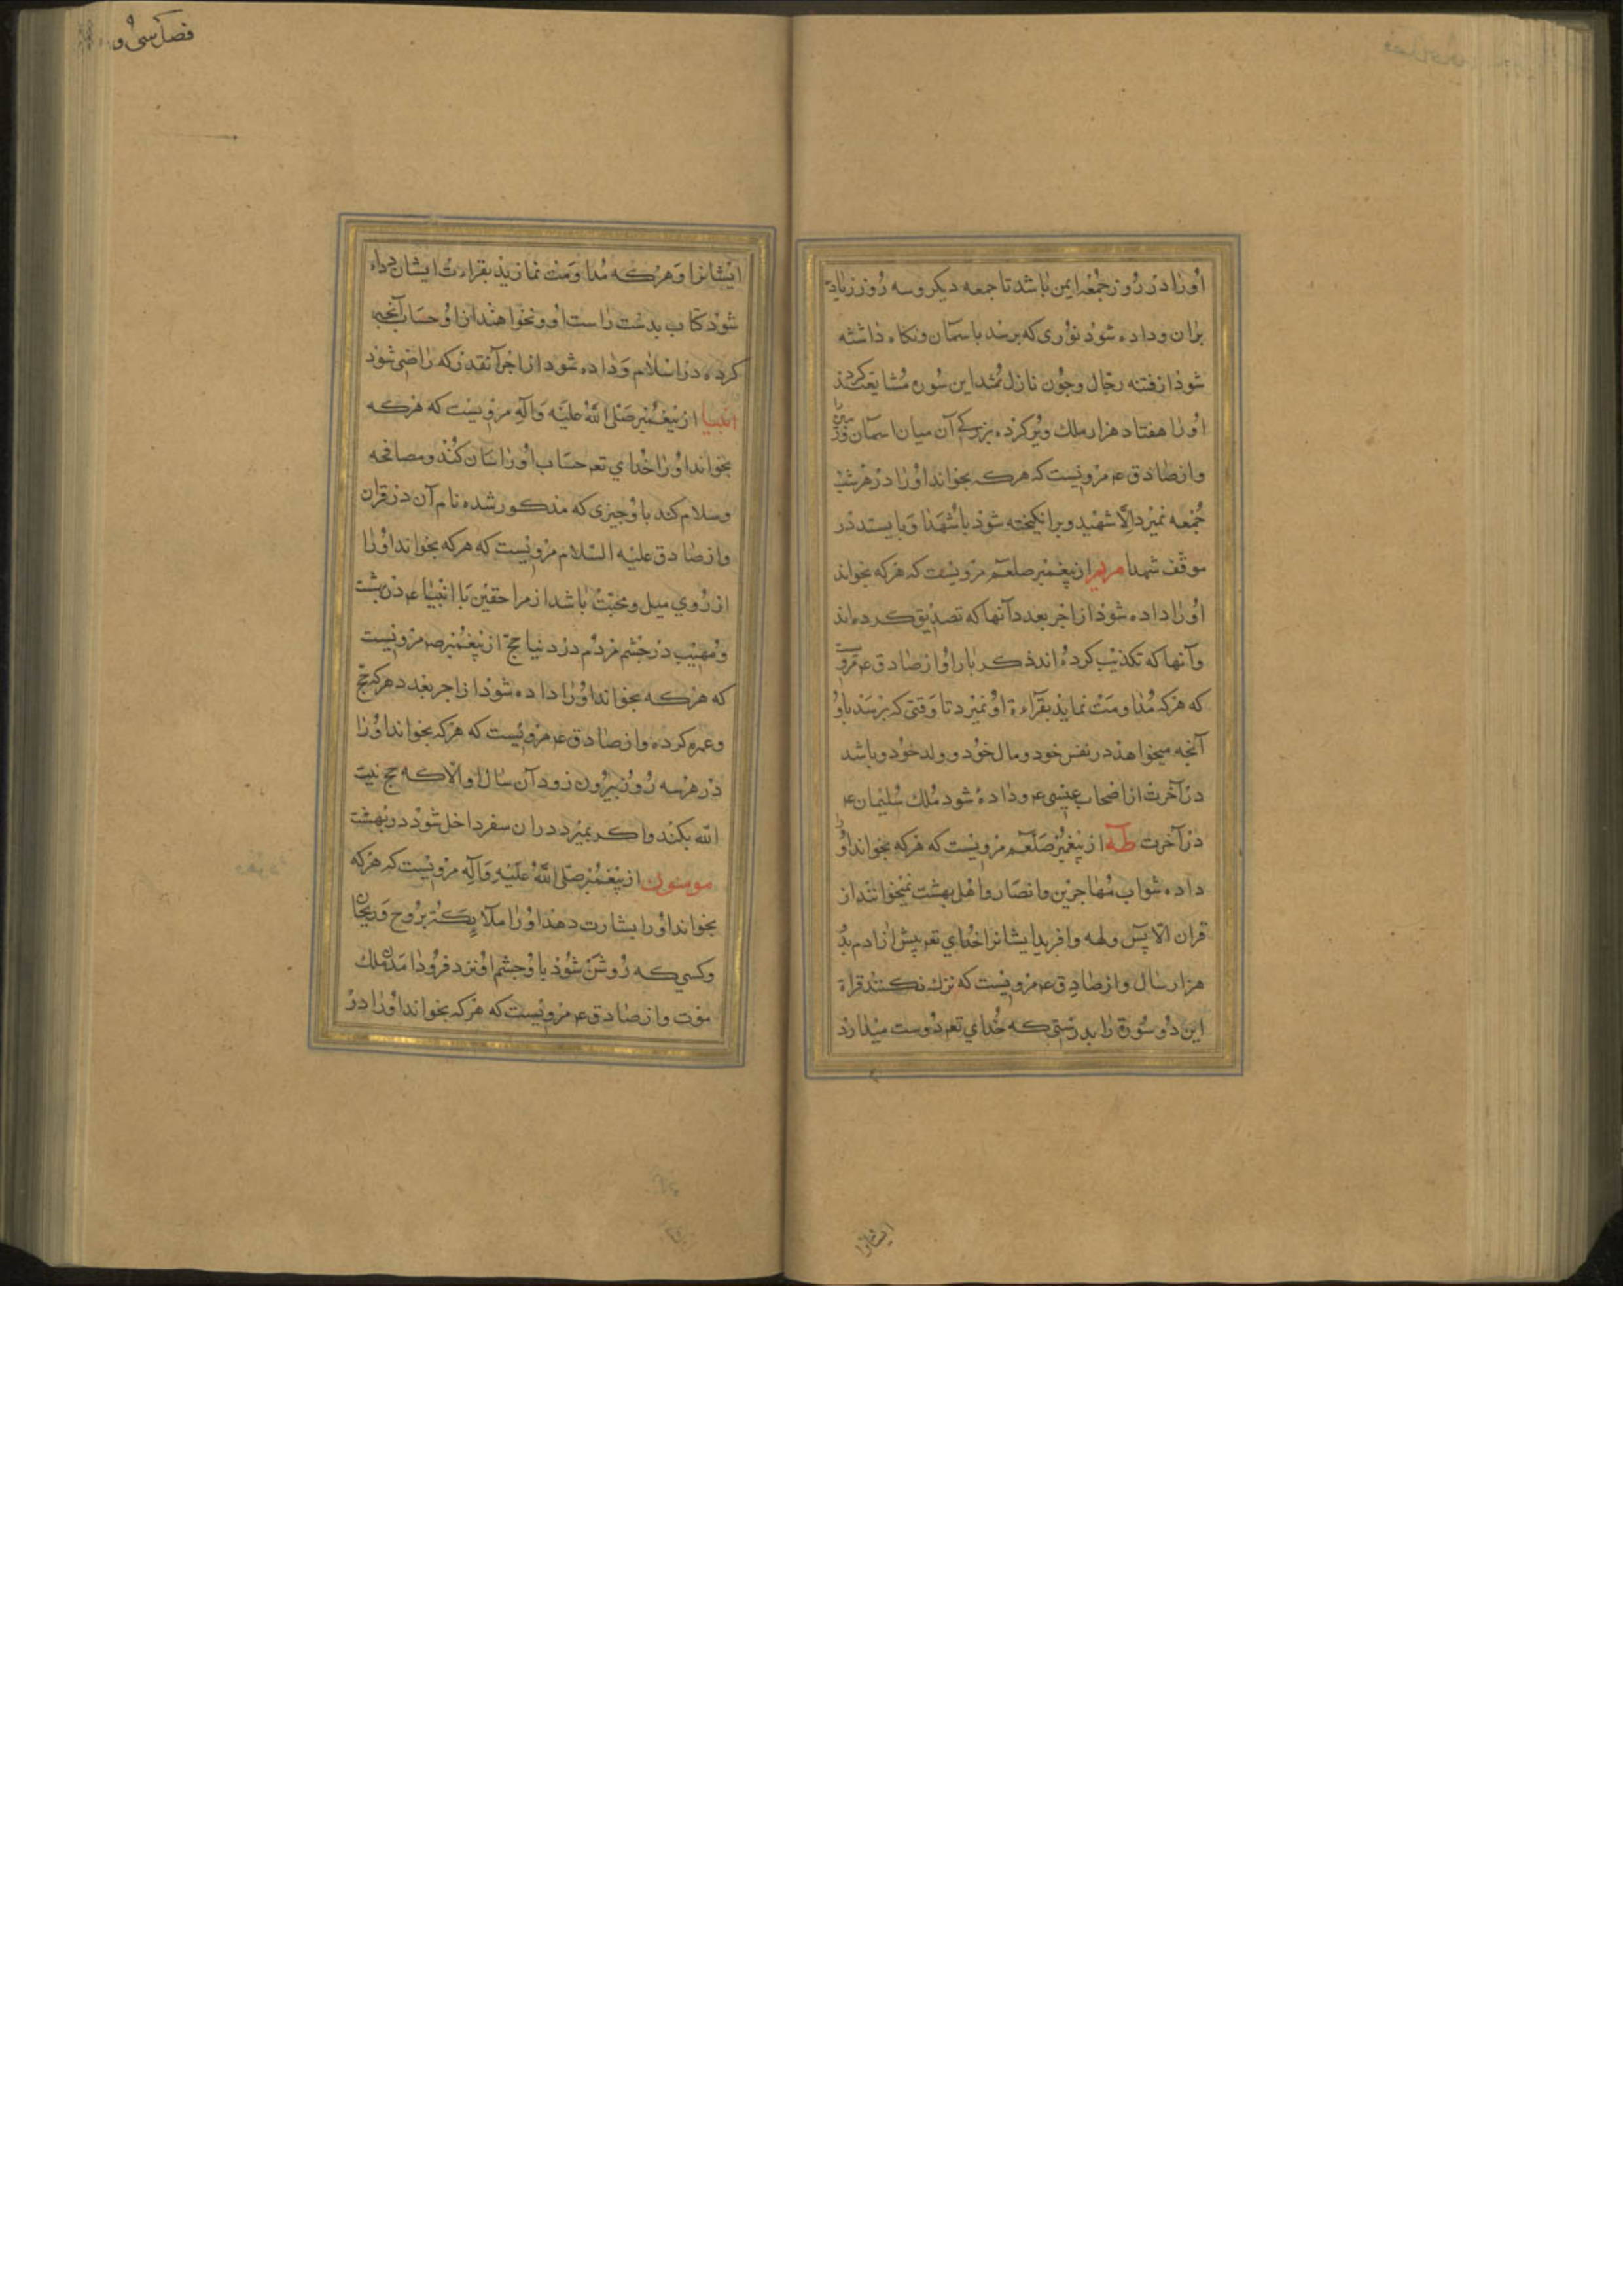 اورا در روز جمعه ایمن باشد تا جمعه دیکر وسه روز زیاده
بران وداده شود نوری که برسد باسمان ونکاه داشته
شود از فتنه رجال وچون نازل شد این سوره مشایعت کردند
اورا هفتاد هزار ملک وپر کرده بزرکی آن میان اسمان وزمین را
واز صادق ع مرویست که هرکه بخواند اورا در هر شب
جمعه نمیرد الا شهید وبرانکیخته شود با شهدا وبایستد در
موقف شهدا مریم از پیغمبر صلعم مرویست که هرکه بخواند
اورا داده شود از اجر بعدد آنها که تصدیق کرده اند
وآنها که تکذیب کرده اند ذکریا را واز صادق ع مرویست
که هرکه مداومت نماید بقراءة او نمیرد تا وقتی که برسد باو
آنچه میخواهد در نفس خود ومال خود وولد خود وباشد
در آخرت از اصحاب عیسی ع وداده شود ملک سلیمان ع
در آخرت طه از پیغمبر صلعم مرویست که هرکه بخواند اورا
داده شواب مهاجرین وانصار واهل بهشت نمیخوانند از
قران الا یس وطه وافرید ایشانرا خدای تع پیش از ادم بدو
هزار سال واز صادق ع مرویست که ترک نکنند قراة
این دو سورة را بدرستی که خدای تع دوست میدارد
ایشانرا
فصل سی و
ایشانرا وهرکه مداومت نماید بقراءت ایشان داده
شود کتاب بدست راست او ونخواهند از او حساب آنچه
کرده در اسلام وداده شود از اجر آنقدر که راضی شود
انبیا از پیغمبر صلی الله علیه وآله مرویست که هرکه
بخواند اورا خدای تع حساب اورا اسان کند ومصافحه
وسلام کند باو چیزی که مذکور شده نام آن در قران
واز صادق علیه السلام مرویست که هرکه بخواند اورا
از روی میل ومحبت باشد از مرافقین با انبیاء ع در بهشت
ومهیب در چشم مردم در دنیا حج از پیغمبر ص مرویست
که هرکه بخواند اورا داده شود از اجر بعدد هرکه حج
وعمره کرده واز صادق ع مرویست که هرکه بخواند اورا
در هر سه روز بیرون نرود آن سال او الا که حج بیت
الله بکند واکر بمیرد دران سفر داخل شود در بهشت
مومنون از پیغمبر صلی الله علیه وآله مرویست که هرکه
بخواند اورا بشارت دهد اورا ملایکه بروح وریحان
وکسی که روشن شود باو چشم او نزد فرود امدن ملک
موت واز صادق ع مرویست که هرکه بخواند اورا در